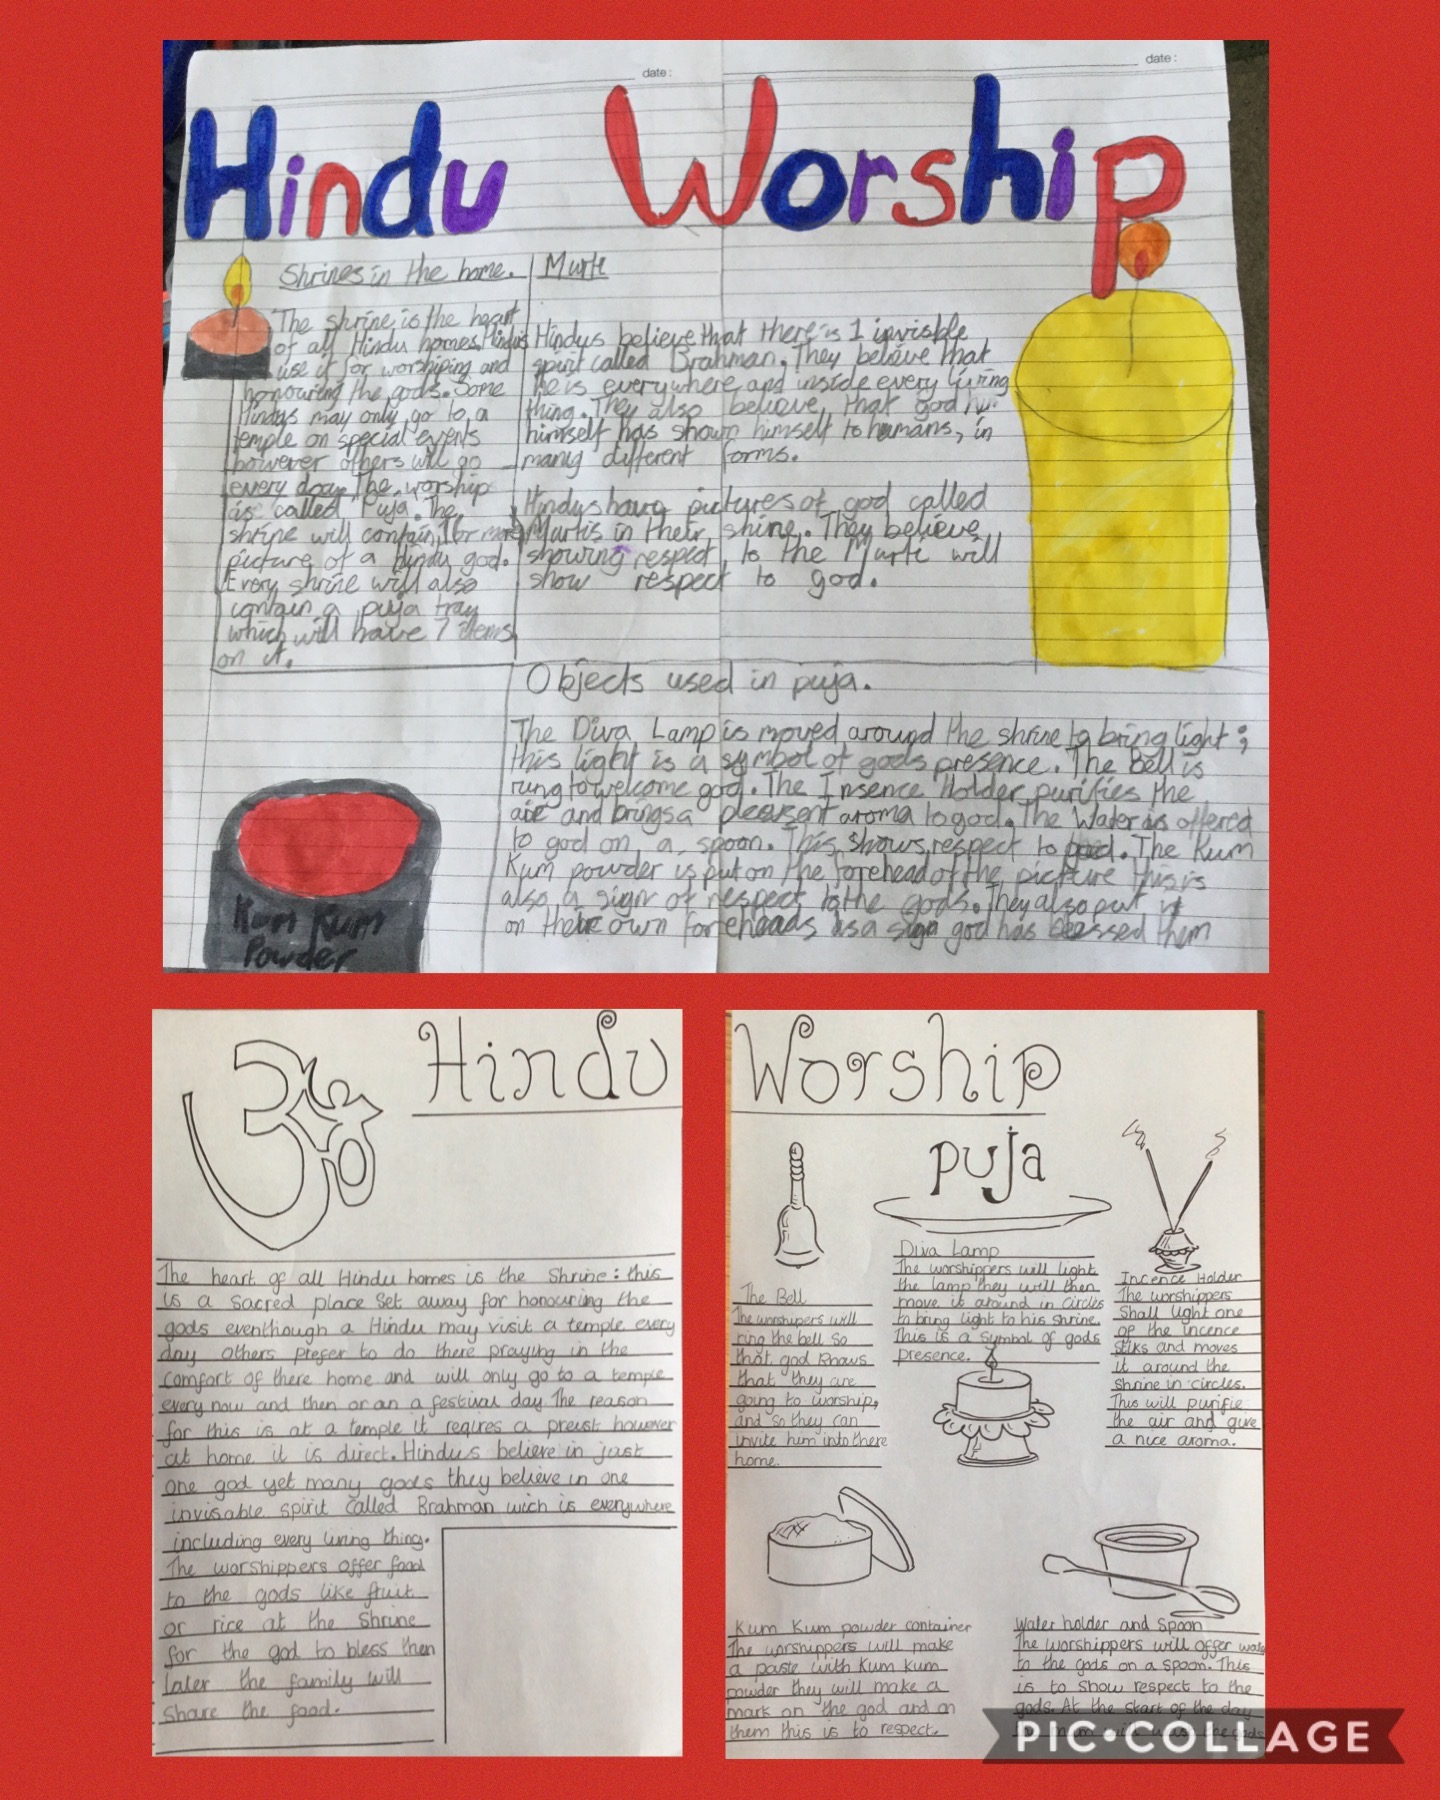 date:
date:
Hindu Worship
Shrines in the home.
The shrine is the heart
of all Hindu homes. Hindus
use it for worshiping and
honouring the gods. Some
Hindus may only go to a
temple on special events
however others will go
every day. The worship
is called Puja. The
shrine will contain 1 or more
picture of a hindu god.
Every shrine will also
contain a puja tray
which will have 7 items
on it.
Murti
Hindus believe that there is 1 invisble
spirit called Brahman. They believe that
he is everywhere and inside every living
thing. They also believe that god
himself has shown himself to humans, in
many different forms.
Hindus have pictures of god called
Murtis in their shrine. They believe
showing respect to the Murti will
show respect to god.
Objects used in puja.
The Diva Lamp is moved around the shrine to bring light;
this light is a symbol of gods presence. The Bell is
rung to welcome god. The Insence Holder purifies the
air and brings a pleasent aroma to god. The Water is offered
to god on a spoon. This shows respect to god. The Kum
Kum powder is put on the forehead of the picture this is
also a sign of respect to the gods. They also put it
on their own foreheads as a sign god has blessed them
Kum Kum
Powder
Hindu
The heart of all Hindu homes is the Shrine: this
is a sacred place set away for honouring the
gods eventhough a Hindu may visit a temple every
day others prefer to do there praying in the
comfort of there home and will only go to a temple
every now and then or an a festival day. The reason
for this is at a temple it reqires a preist however
at home it is direct. Hindus believe in just
one god yet many gods they believe in one
invisable spirit called Brahman wich is everywhere
including every living thing.
The worshippers offer food
to the gods like fruit
or rice at the Shrine
for the god to bless then
later the family will
share the food.
Worship
puja
The Bell
The worshipers will
ring the bell so
that god knows
that they are
going to worship,
and so they can
invite him into there
home.
Diva Lamp
The worshippers will light
the lamp they will then
move it around in circles
to bring light to his shrine.
This is a symbol of gods
presence.
Incence Holder
The worshippers
Shall light one
of the incence
stiks and moves
it around the
shrine in circles.
This will purifie
the air and give
a nice aroma.
Kum Kum powder container
The worshippers will make
a paste with Kum Kum
powder they will make a
mark on the god and on
them this is to respect.
Water holder and Spoon
The worshippers will offer water
to the gods on a spoon. This
is to show respect to the
gods. At the start of the day
PIC•COLLAGE